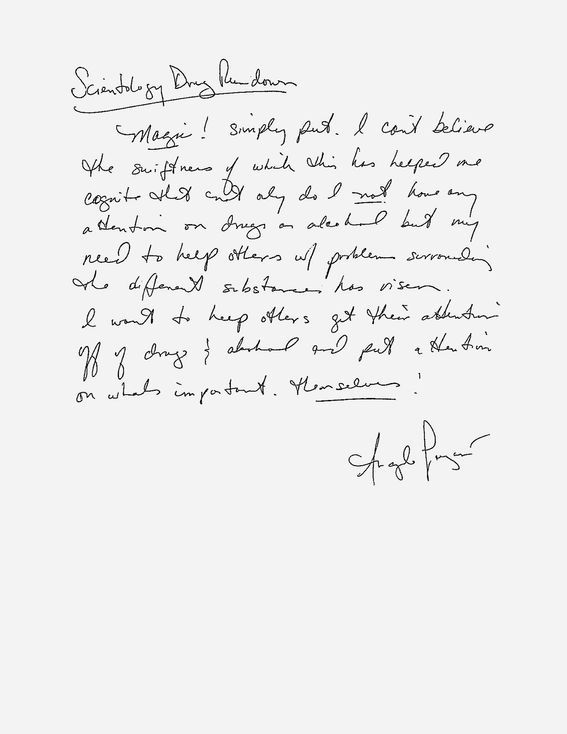 Scientology Drug Rundown
Magic! Simply put. I can't believe
the swiftness of which this has helped me
cognite that not only do I not have any
attention on drugs or alcohol but my
need to help others w/ problems surrounding
the different substances has risen.
I want to help others get their attention
off of drugs & alcohol and put attention
on whats important. Themselves!